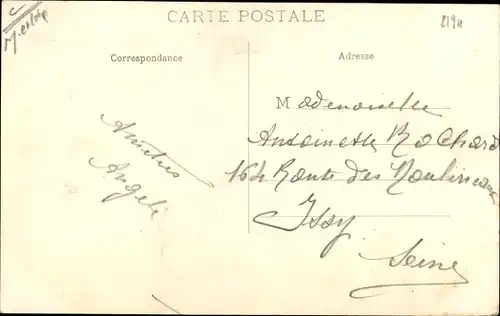 CARTE POSTALE
2194
Correspondance
Adresse
Amitiés
Angèle
Mademoiselle
Antoinette Rochard
164 Route des Moulineaux
Issy
Seine